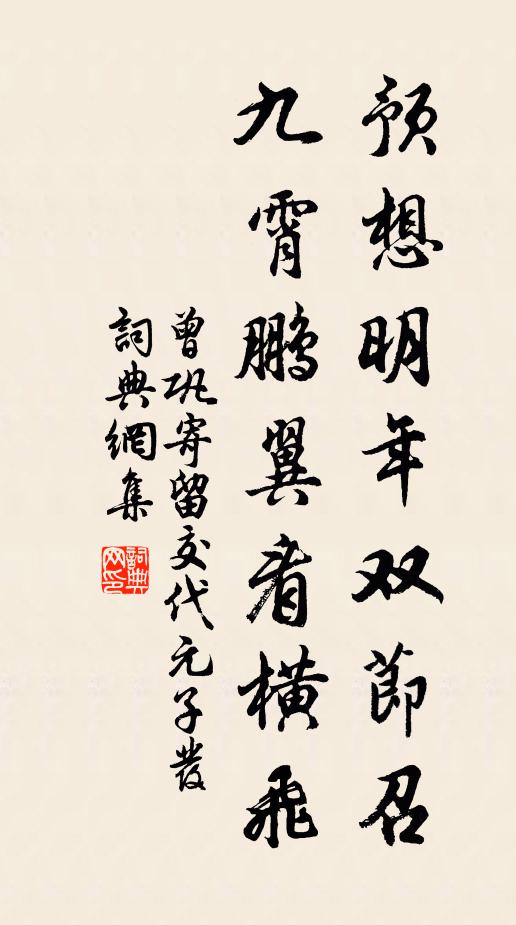 预想明年双節召
九霄鹏翼看横飛
曾巩寄留交代元子發
詞典網集
詞典网印